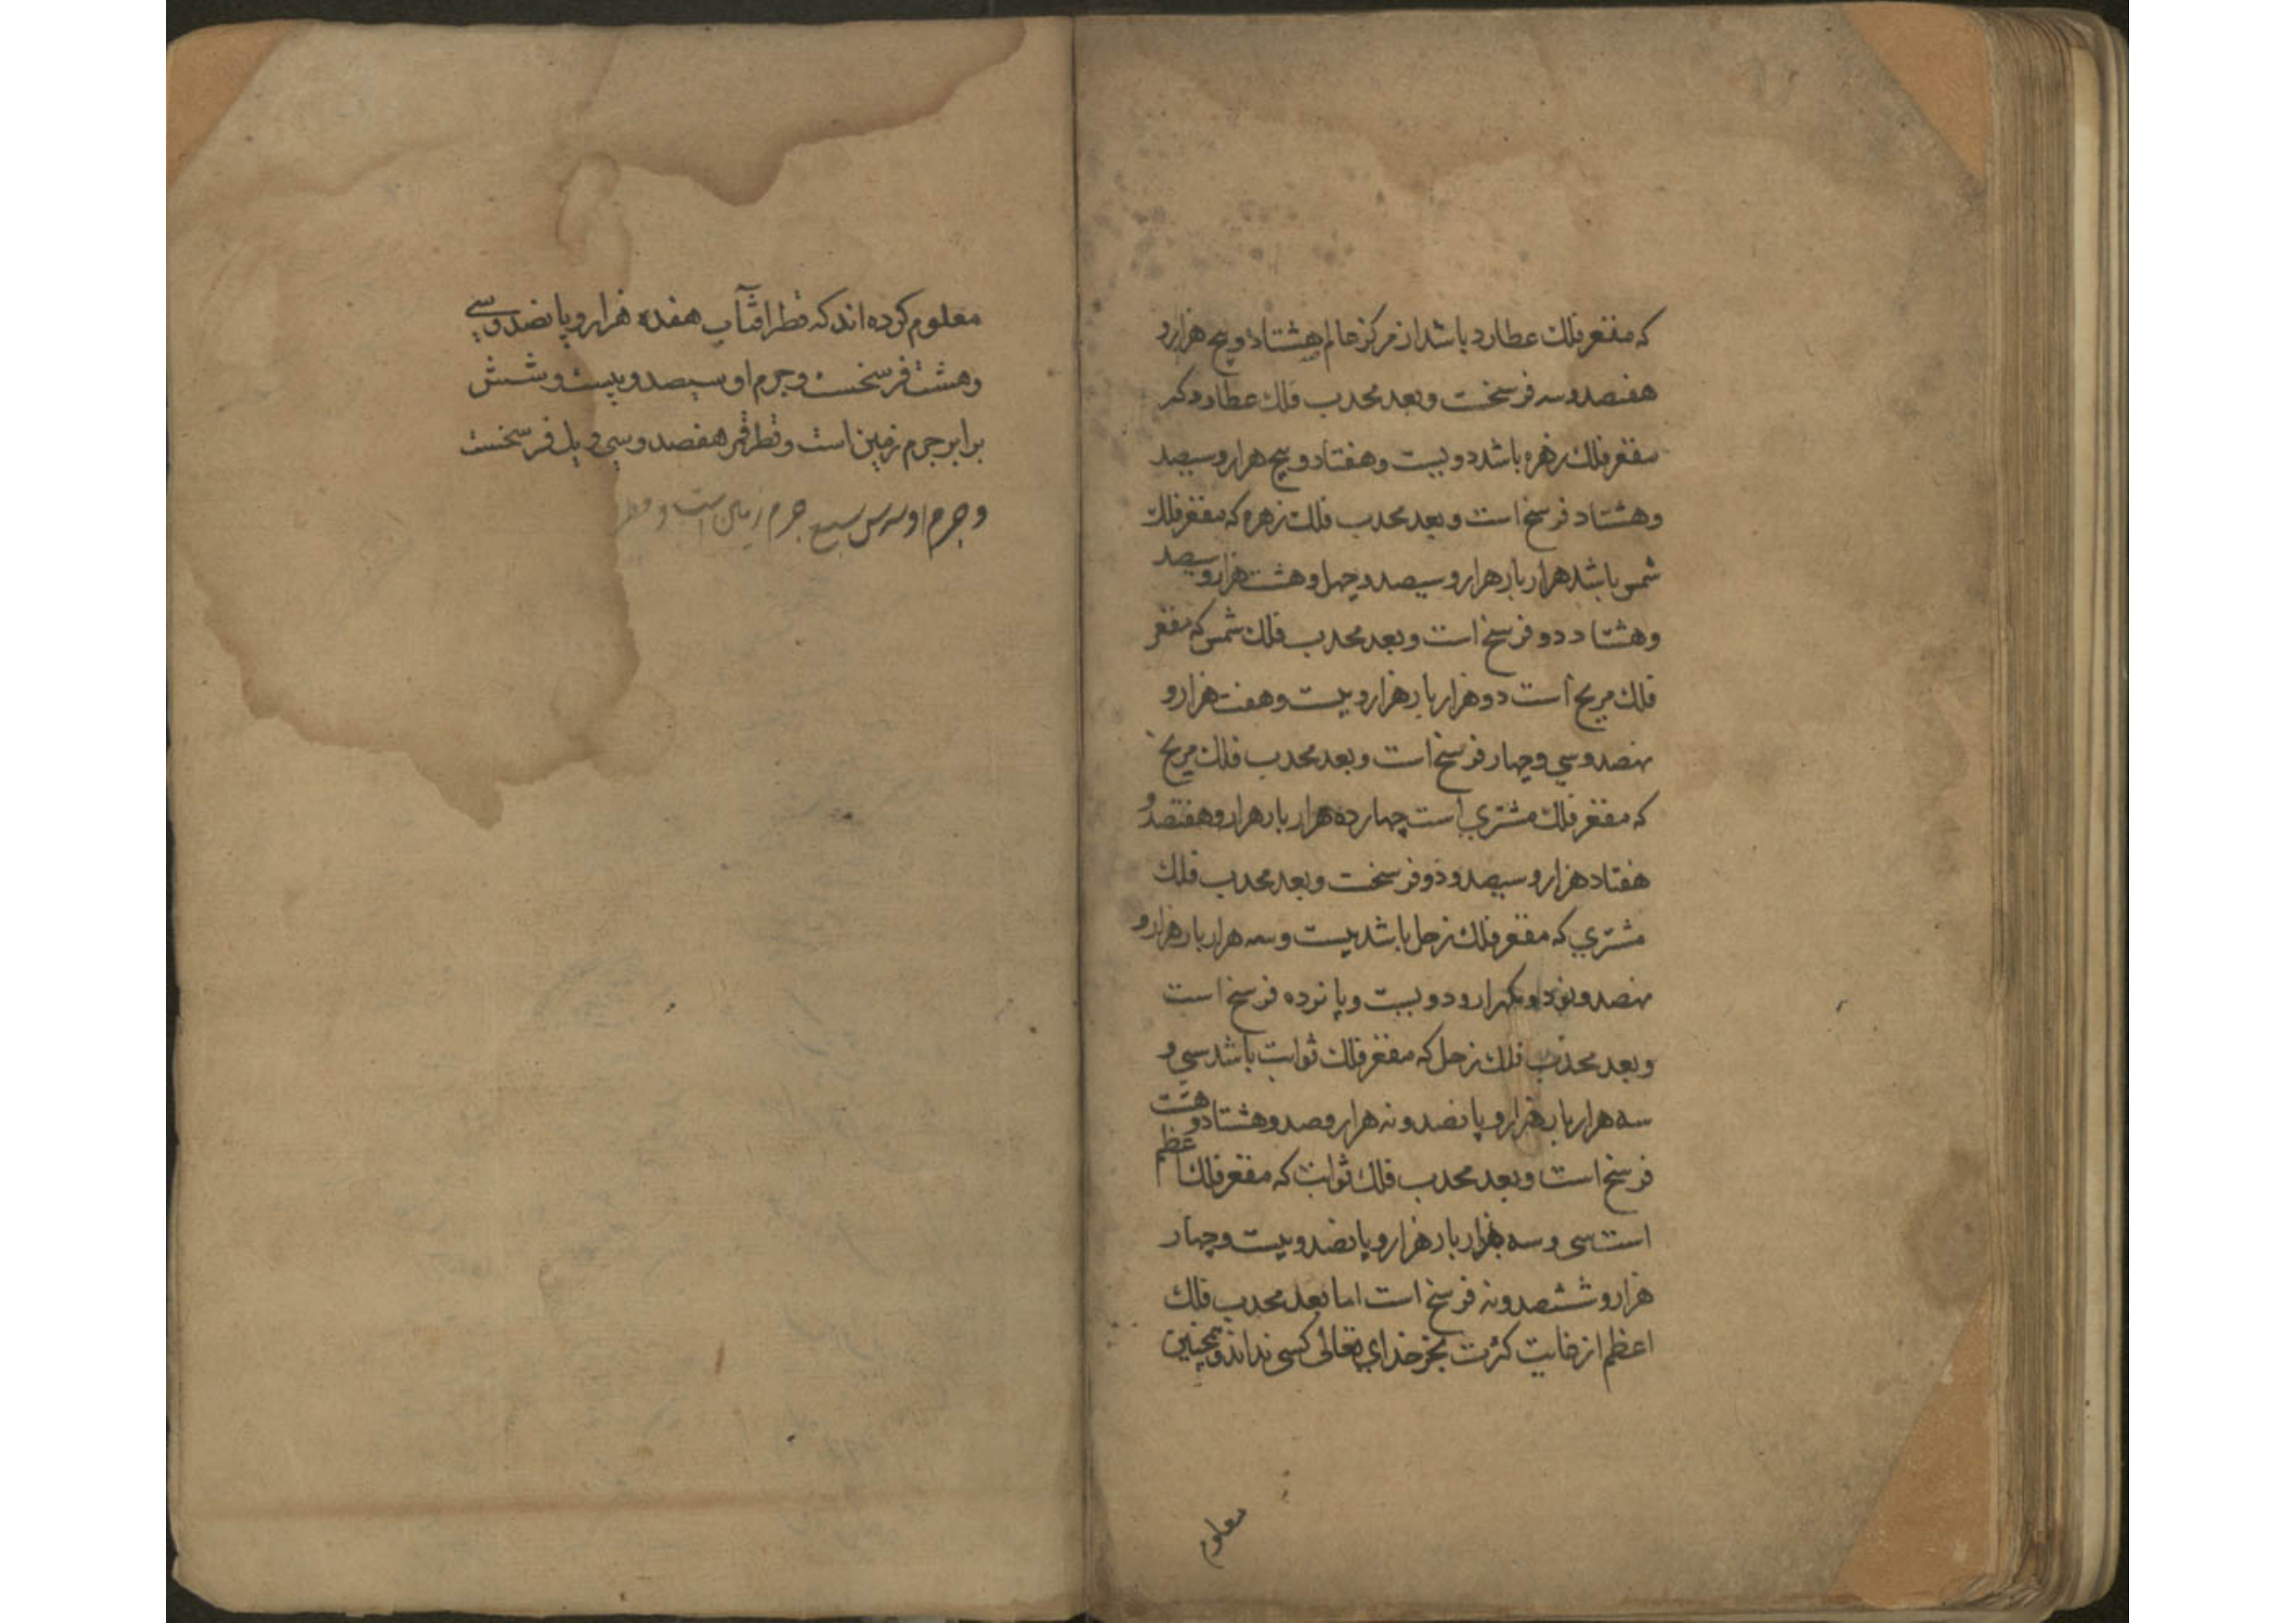 که مقعر فلک عطارد باشد از مرکز عالم هشتاد و پنج هزار و
هفتصد و سه فرسخست و بعد محدب فلک عطارد که
مقعر فلک زهره باشد دویست و هفتاد و پنج هزار و سیصد
و هشتاد فرسخ است و بعد محدب فلک زهره که مقعر فلک
شمس باشد هزار بار هزار و سیصد و چهل و هشت هزار و سیصد
و هشتاد دو فرسخ است و بعد محدب فلک شمس که مقعر
فلک مریخ است دو هزار بار هزار و بیست و هفت هزار و
نهصد و سی و چهار فرسخ است و بعد محدب فلک مریخ
که مقعر فلک مشتری است چهارده هزار بار هزار و هفتصد و
هفتاد هزار و سیصد و دو فرسخت و بعد محدب فلک
مشتری که مقعر فلک زحل باشد بیست و سه هزار بار هزار و
نهصد و نود و یکهزار و دویست و پانزده فرسخ است
و بعد محدب فلک زحل که مقعر فلک ثوابت باشد سی و
سه هزار بار هزار و پانصد و نه هزار و صد و هشتاد و هشت
فرسخ است و بعد محدب فلک ثوابت که مقعر فلک اعظم
است سی و سه هزار بار هزار و پانصد و بیست و چهار
هزار و ششصد و نه فرسخ است اما بعد محدب فلک
اعظم از غایت کثرت بجز خدای تعالی کسی نداند و همچنین
معلوم
معلوم کرده اند که قطر آفتاب هفده هزار و پانصد و سی
و هشت فرسخست و جرم او سیصد و بیست و شش
برابر جرم زمین است و قطر قمر هفصد و سی و یک فرسخست
و جرم او سبع جرم زمین است و قطر